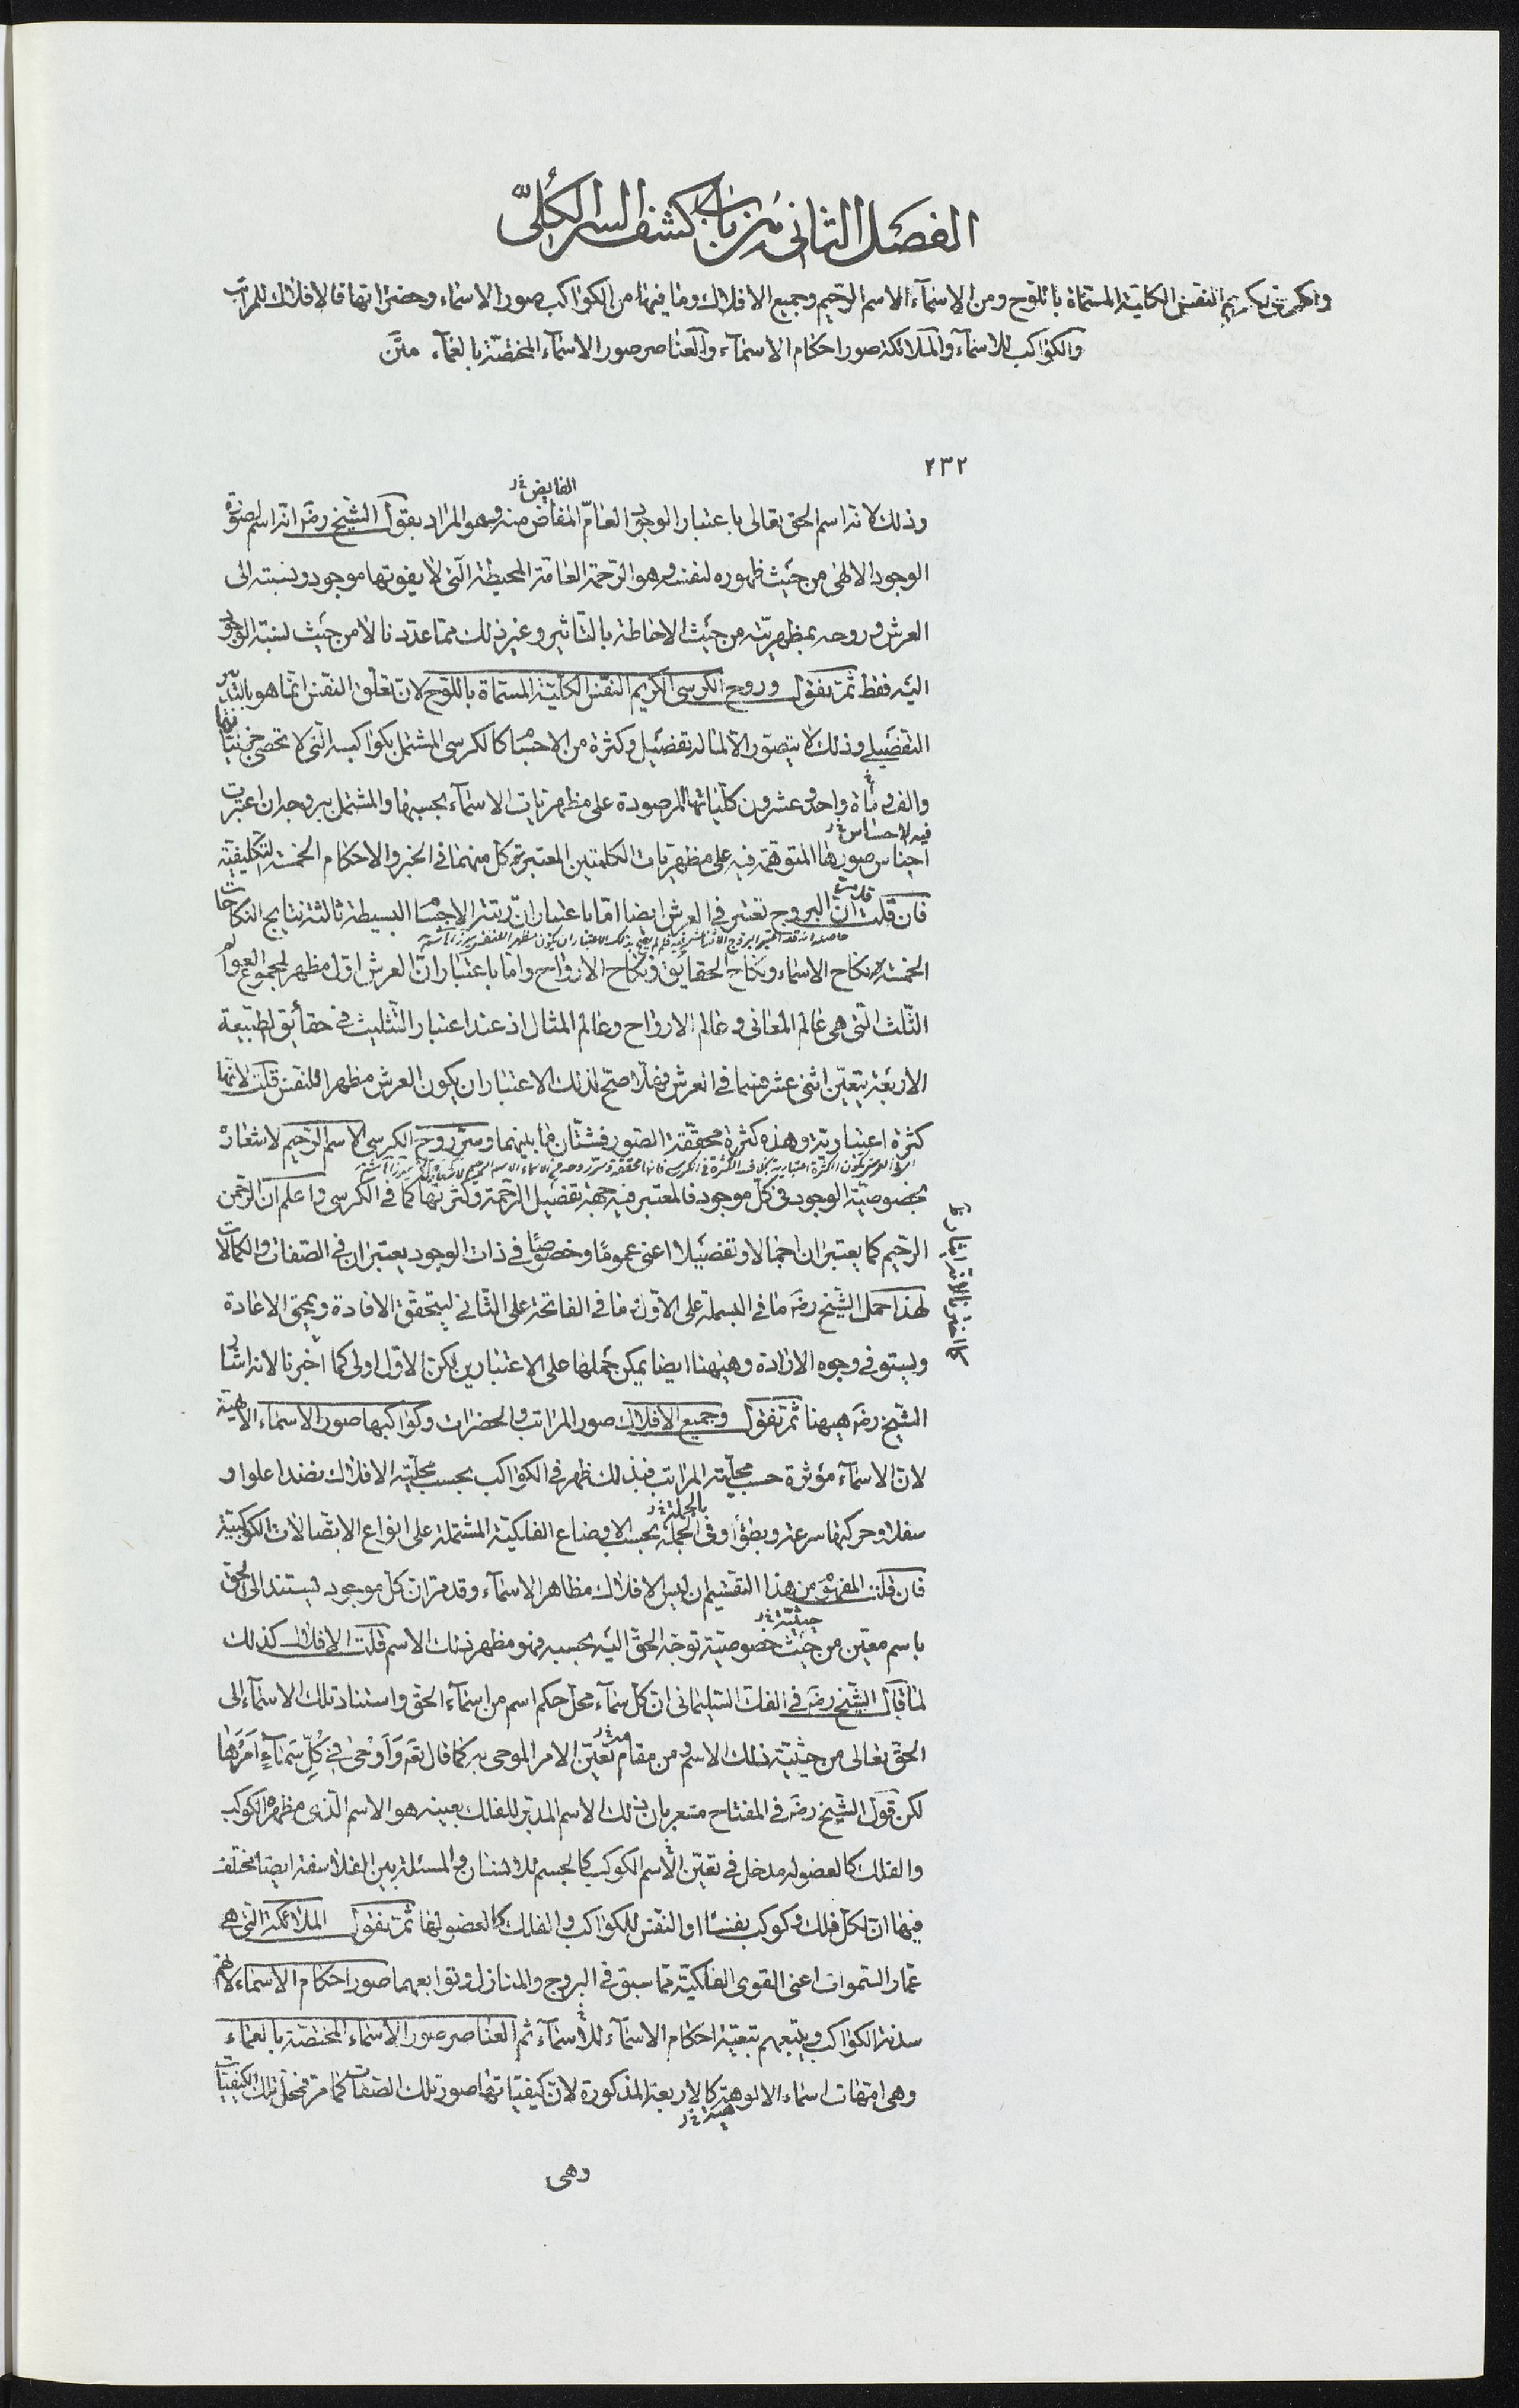 الفصل الثانى من باب كشف السر الكلّى
والكرسى الكريم النفس الكلية المسماة باللوح ومن الاسمآء الاسم الرحيم وجميع الافلاك وما فيها من الكواكب صور الاسماء وحضراتها فالافلاك للمراتب
والكواكب للاسمآء والملائكة صور احكام الاسمآء والعناصر صور الاسمآء المختصّة بالعمآء متن
٢٣٢
الفايض خ ر
وذلك لانه اسم الحق تعالى باعتبار الوجود العامّ المفاض منه وهو المراد بقول الشيخ رضه انه اسم لصورة
الوجود الالهى من حيث ظهوره لنفسه وهو الرحمة العامة المحيطة الّتى لا يفوتها موجود ونسبته الى
العرش وروحه بمظهريّته من حيث الاحاطة بالتأثير وغير ذلك مما عددنا لا من حيث نسبة الوجود
اليه فقط ثمّ نقول وروح الكرسى الكريم النفس الكليّة المسماة باللوح لان تعلّق النفس انما هو بالتدبّر
التفضيلى وذلك لا يتصور الا لما له تفضيل وكثرة من الاجسام كالكرسى المشتمل بكواكبه التى لا تحصى جزئياتها
والف و مأة واحد وعشرون كلياتها المرصودة على مظهريات الاسمآء بحسبها والمشتمل بروجه ان اعتبرت
فيه الاحساس خ ر
اجناس صورها المتوهمة فيه على مظهريات الكلمتين المعتبر تمّ كل منهما فى الخبر والاحكام الخمسة التكليفيّة
فان قلت قد مرّ ان البروج تعتبر فى العرش ايضا امّا باعتبار انّ رتبة الاجسام البسيطة ثالثة نتايج النكاحات
الخمسة نكاح الاسماء ونكاح الحقايق ونكاح الارواح وامّا باعتبار انّ العرش اوّل مظهر لمجموع العوالم
الثّلث الّتى هى عالم المعانى وعالم الارواح وعالم المثال اذ عند اعتبار التّثليث فى حقائق الطبيعة
الاربعة يتعيّن اثنى عشر قسما فى العرش فهلّا صحّ لذلك الاعتبار ان يكون العرش مظهرا للنفس قلت لانّها
كثرة اعتباريّة وهذه كثرة محقّقة الصّور فشتّان ما بينهما وسرّ روح الكرسى الاسم الرّحيم لاشعاره
بخصوصيّة الوجود فى كلّ موجود فالمعتبر فيه جهة تفضيل الرّحمة وكثرتها كما فى الكرسى واعلم ان الرّحمن
الرّحيم كما يعتبران اجمالا وتفضيلا اعنى عموما وخصوصا فى ذات الوجود يعتبران فى الصّفات والكمالات
لهذا حمل الشّيخ رضه ما فى البسملة على الاوّل وما فى الفاتحة على الثّانى ليتحقّق الافادة ويمحى الاعادة
ويستوفى وجوه الارادة وههنا ايضا يمكن حملها على الاعتبارين لكن الاوّل اولى كما اخبرنا لانه اشار
الشّيخ رضه ههنا ثمّ نقول وجميع الافلاك صور المراتب والحضرات وكواكبها صور الاسماء الالهيّة
لان الاسمآء مؤثرة حسب محلّيّة المراتب فبذلك ظهر فى الكواكب بحسب محلّيّة الافلاك نضدا علوا و
بالجملة خ ر
سفلا وحركتها سرعة وبطؤا وفى الجملة بحسب الاوضاع الفلكيّة المشتملة على انواع الاتّصالات الكوكبيّة
فان قلت المفهوم من هذا التقسيم ان ليس الافلاك مظاهر الاسمآء وقد مرّ ان كلّ موجود يستند الى الحق
حيثيّة خ ر
باسم معيّن من حيث خصوصيّة توجّه الحق اليه بحسبه فهو مظهر ذلك الاسم قلت الافلاك كذلك
لما قال الشّيخ رضه فى الفك السّليمانى ان كلّ سمآء محلّ حكم اسم من اسمآء الحق واستناد تلك الاسمآء الى
الحق تعالى من حيثيّة ذلك الاسم ومن مقام تعيّن الامر الموحى به كما قال تعه وَاَوْحى فِى كُلِّ سَمآءٍ اَمْرَها
لكن قول الشّيخ رضه فى المفتاح مشعر بان ذلك الاسم المدبّر للفلك بعينه هو الاسم الّذى مظهره الكوكب
والفلك كالعضو له مدخل فى تعيّن الاسم الكوكب كالجسم للانسان والمسئلة بين الفلاسفة ايضا مختلف
فيها ان لكلّ فلك وكوكب نفسًا او النّفس للكواكب والفلك كالعضو لها ثمّ نقول الملائكة التى هى
عمّار السّموات اعنى القوى الفلكيّة مما سبق فى البروج والمنازل وتوابعهما صور احكام الاسماء لانّهم
سدنة الكواكب ويتبعهم تبعيّة احكام الاسمآء للاسمآء ثم العناصر صور الاسماء المختصّة بالعماء
وهى امّهات اسماء الالوهيّة كالاربعة المذكورة لان كيفيّاتها صور تلك الصّفات كما مرّ فمحلّ تلك الكيفيّات
هيته خ ر
وهى